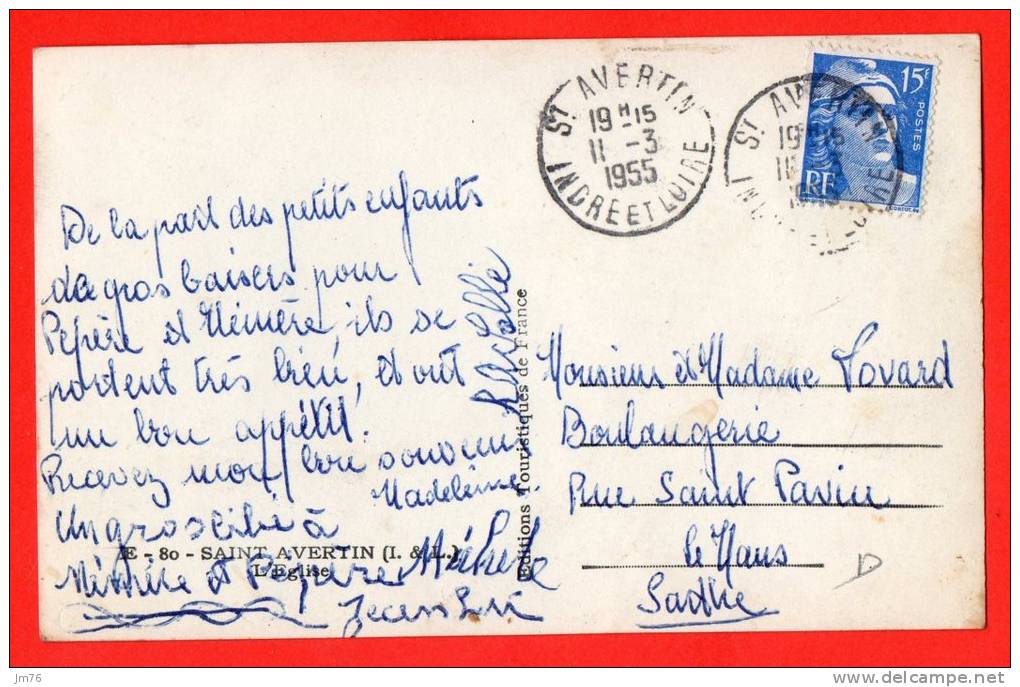 ST AVERTIN
19H15
11 -3
1955
INDRE ET LOIRE
ST AVERTIN
15F
POSTES
RF
De la part des petits enfants
de gros baisers pour
Pepère et Mémère, ils se
portent très bien, et ont
un bon appétit.
Recevez mon bon souvenir
Madeleine
Un gros bibi à
Mémère et Pepère Michele
Jean Luc
E - 80 - SAINT AVERTIN (I. & L.)
L'Eglise
Editions Touristiques de France
Monsieur et Madame Tovard
Boulangerie
Rue Saint Pavin
le Mans
Sarthe
D
jm76
www.delcampe.net